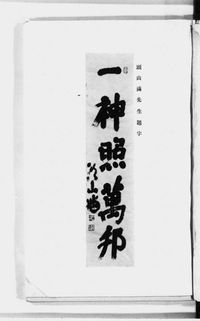 頭山滿先生題字
一神照萬邦
頭山滿